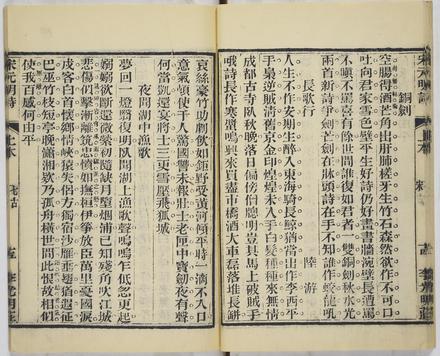 銅劍
空腸得酒芒角出肝肺槎牙生竹石森然欲作不可囘
吐向君家雪色壁平生好詩仍好畫書牆涴壁長遭罵
不嗔不罵喜有餘世間誰復如君者一雙銅劍秋水光
兩首新詩爭劍鋩劍在牀頭詩在手不知誰作蛟龍吼
長歌行 陸游
人生不作安期生醉入東海騎長鯨猶當出作李西平
手梟逆賊清舊京金印煌煌未入手白髮種種來無情
成都古寺臥秋晚落日偏傍僧牕明豈其馬上破賊手
哦詩長作寒螿鳴興來買盡市橋酒大車磊落堆長缾
哀絲豪竹助劇飲如鉅野受黃河傾平時一滴不入口
意氣頓使千人驚國讎未報壯士老匣中寶劍夜有聲
何當凱還宴將士三更雪壓飛狐城
夜聞湖中漁歌
夢回一燈翳復明臥聞湖上漁歌聲嗚嗚乍低忽更起
嫋嫋欲斷還微縈初隨缺月墮煙浦已知殘角吹江城
悲傷似擊漸離筑忠憤如撫桓伊箏放臣萬里憂國淚
戍客白首懷鄉情峽猿失侶方獨宿沙雁垂翅猶遐征
巴巫竹枝短亭晚瀟湘欸乃孤舟橫世間此恨故相似
使我百感何由平
宋元明詩